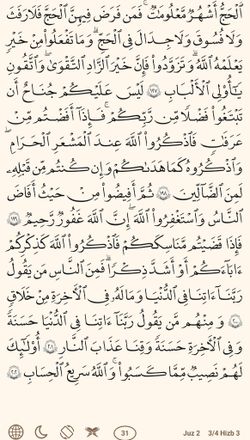 ٱلْحَجُّ أَشْهُرٌ مَّعْلُومَٰتٌ ۚ فَمَن فَرَضَ فِيهِنَّ ٱلْحَجَّ فَلَا رَفَثَ
وَلَا فُسُوقَ وَلَا جِدَالَ فِى ٱلْحَجِّ ۗ وَمَا تَفْعَلُوا۟ مِنْ خَيْرٍ
يَعْلَمْهُ ٱللَّهُ ۗ وَتَزَوَّدُوا۟ فَإِنَّ خَيْرَ ٱلزَّادِ ٱلتَّقْوَىٰ ۚ وَٱتَّقُونِ
يَٰٓأُو۟لِى ٱلْأَلْبَٰبِ ١٩٧ لَيْسَ عَلَيْكُمْ جُنَاحٌ أَن
تَبْتَغُوا۟ فَضْلًا مِّن رَّبِّكُمْ ۚ فَإِذَآ أَفَضْتُم مِّنْ
عَرَفَٰتٍ فَٱذْكُرُوا۟ ٱللَّهَ عِندَ ٱلْمَشْعَرِ ٱلْحَرَامِ ۖ
وَٱذْكُرُوهُ كَمَا هَدَىٰكُمْ وَإِن كُنتُم مِّن قَبْلِهِۦ
لَمِنَ ٱلضَّآلِّينَ ١٩٨ ثُمَّ أَفِيضُوا۟ مِنْ حَيْثُ أَفَاضَ
ٱلنَّاسُ وَٱسْتَغْفِرُوا۟ ٱللَّهَ ۚ إِنَّ ٱللَّهَ غَفُورٌ رَّحِيمٌ ١٩٩
فَإِذَا قَضَيْتُم مَّنَٰسِكَكُمْ فَٱذْكُرُوا۟ ٱللَّهَ كَذِكْرِكُمْ
ءَابَآءَكُمْ أَوْ أَشَدَّ ذِكْرًا ۗ فَمِنَ ٱلنَّاسِ مَن يَقُولُ
رَبَّنَآ ءَاتِنَا فِى ٱلدُّنْيَا وَمَا لَهُۥ فِى ٱلْءَاخِرَةِ مِنْ خَلَٰقٍ
٢٠٠ وَمِنْهُم مَّن يَقُولُ رَبَّنَآ ءَاتِنَا فِى ٱلدُّنْيَا حَسَنَةً
وَفِى ٱلْءَاخِرَةِ حَسَنَةً وَقِنَا عَذَابَ ٱلنَّارِ ٢٠١ أُو۟لَٰٓئِكَ
لَهُمْ نَصِيبٌ مِّمَّا كَسَبُوا۟ ۚ وَٱللَّهُ سَرِيعُ ٱلْحِسَابِ ٢٠٢
31 Juz 2 3/4 Hizb 3